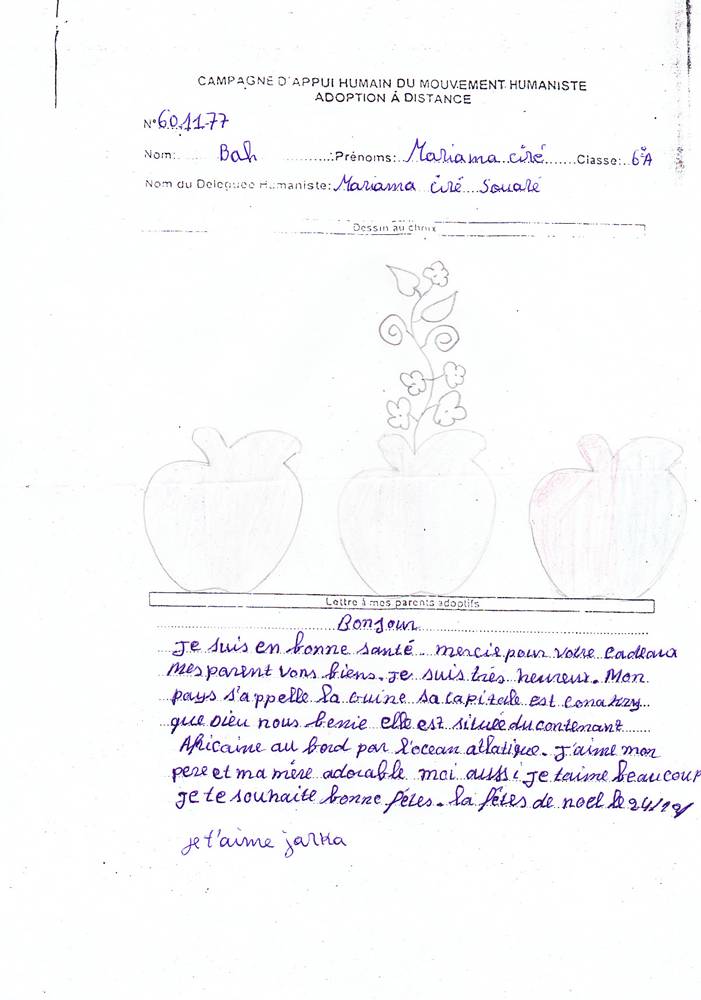 CAMPAGNE D'APPUI HUMAIN DU MOUVEMENT HUMANISTE
ADOPTION À DISTANCE
N° 601177
Nom: Bah Prénoms: Mariama ciré Classe: 6è A
Nom du Deleguee Humaniste: Mariama ciré Souaré
Dessin au choix
Lettre à mes parents adoptifs
Bonjour
Je suis en bonne santé mercie pour votre Cadeaux
Mes parent vons biens. Je suis très heureux. Mon
pays s'appelle la Guine sa capitale est conakry
que Dieu nous benie elle est située du contenant
Africaine au bord par l'ocean atlatique. J'aime mon
pere et ma mère adorable moi aussi je t'aime beaucoup
Je te souhaite bonne fêtes. la fêtes de noel le 24/12/
je t'aime jarka